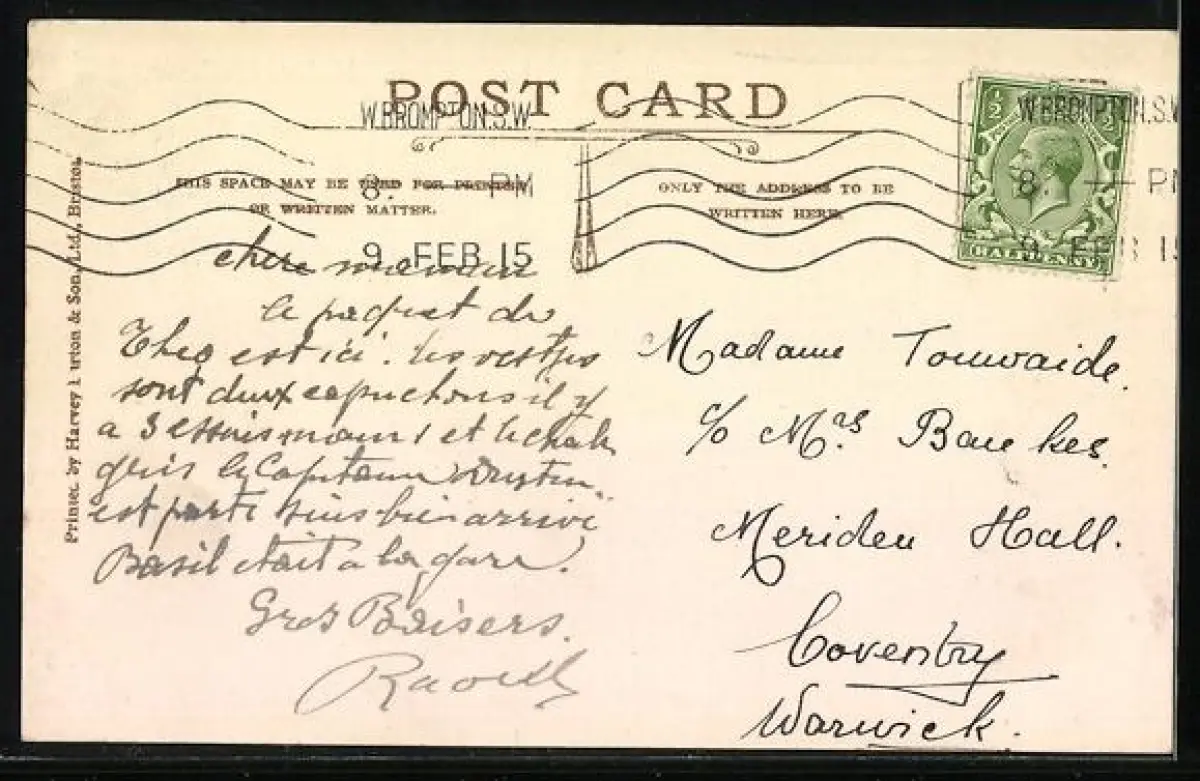 POST CARD
W.BROMPTON.S.W.
8. PM
9 FEB 15
THIS SPACE MAY BE USED FOR PRINTED
OR WRITTEN MATTER.
ONLY THE ADDRESS TO BE
WRITTEN HERE.
½ ½
HALFPENNY
W.BROMPTON.S.W
8. PM
9 FEB 15
Printed by Harvey Barton & Son, Ltd., Bristol.
chère maman
le paquet du
Theo est ici. les
sont deux capuchons il y
a 3 et le
gris le Capitaine
est parti suis bien arrivé
Basil etait a la gare.
Gros Baisers.
Raoul
Madame Touwaide.
c/o Mrs Bankes.
Meriden Hall.
Coventry
Warwick.